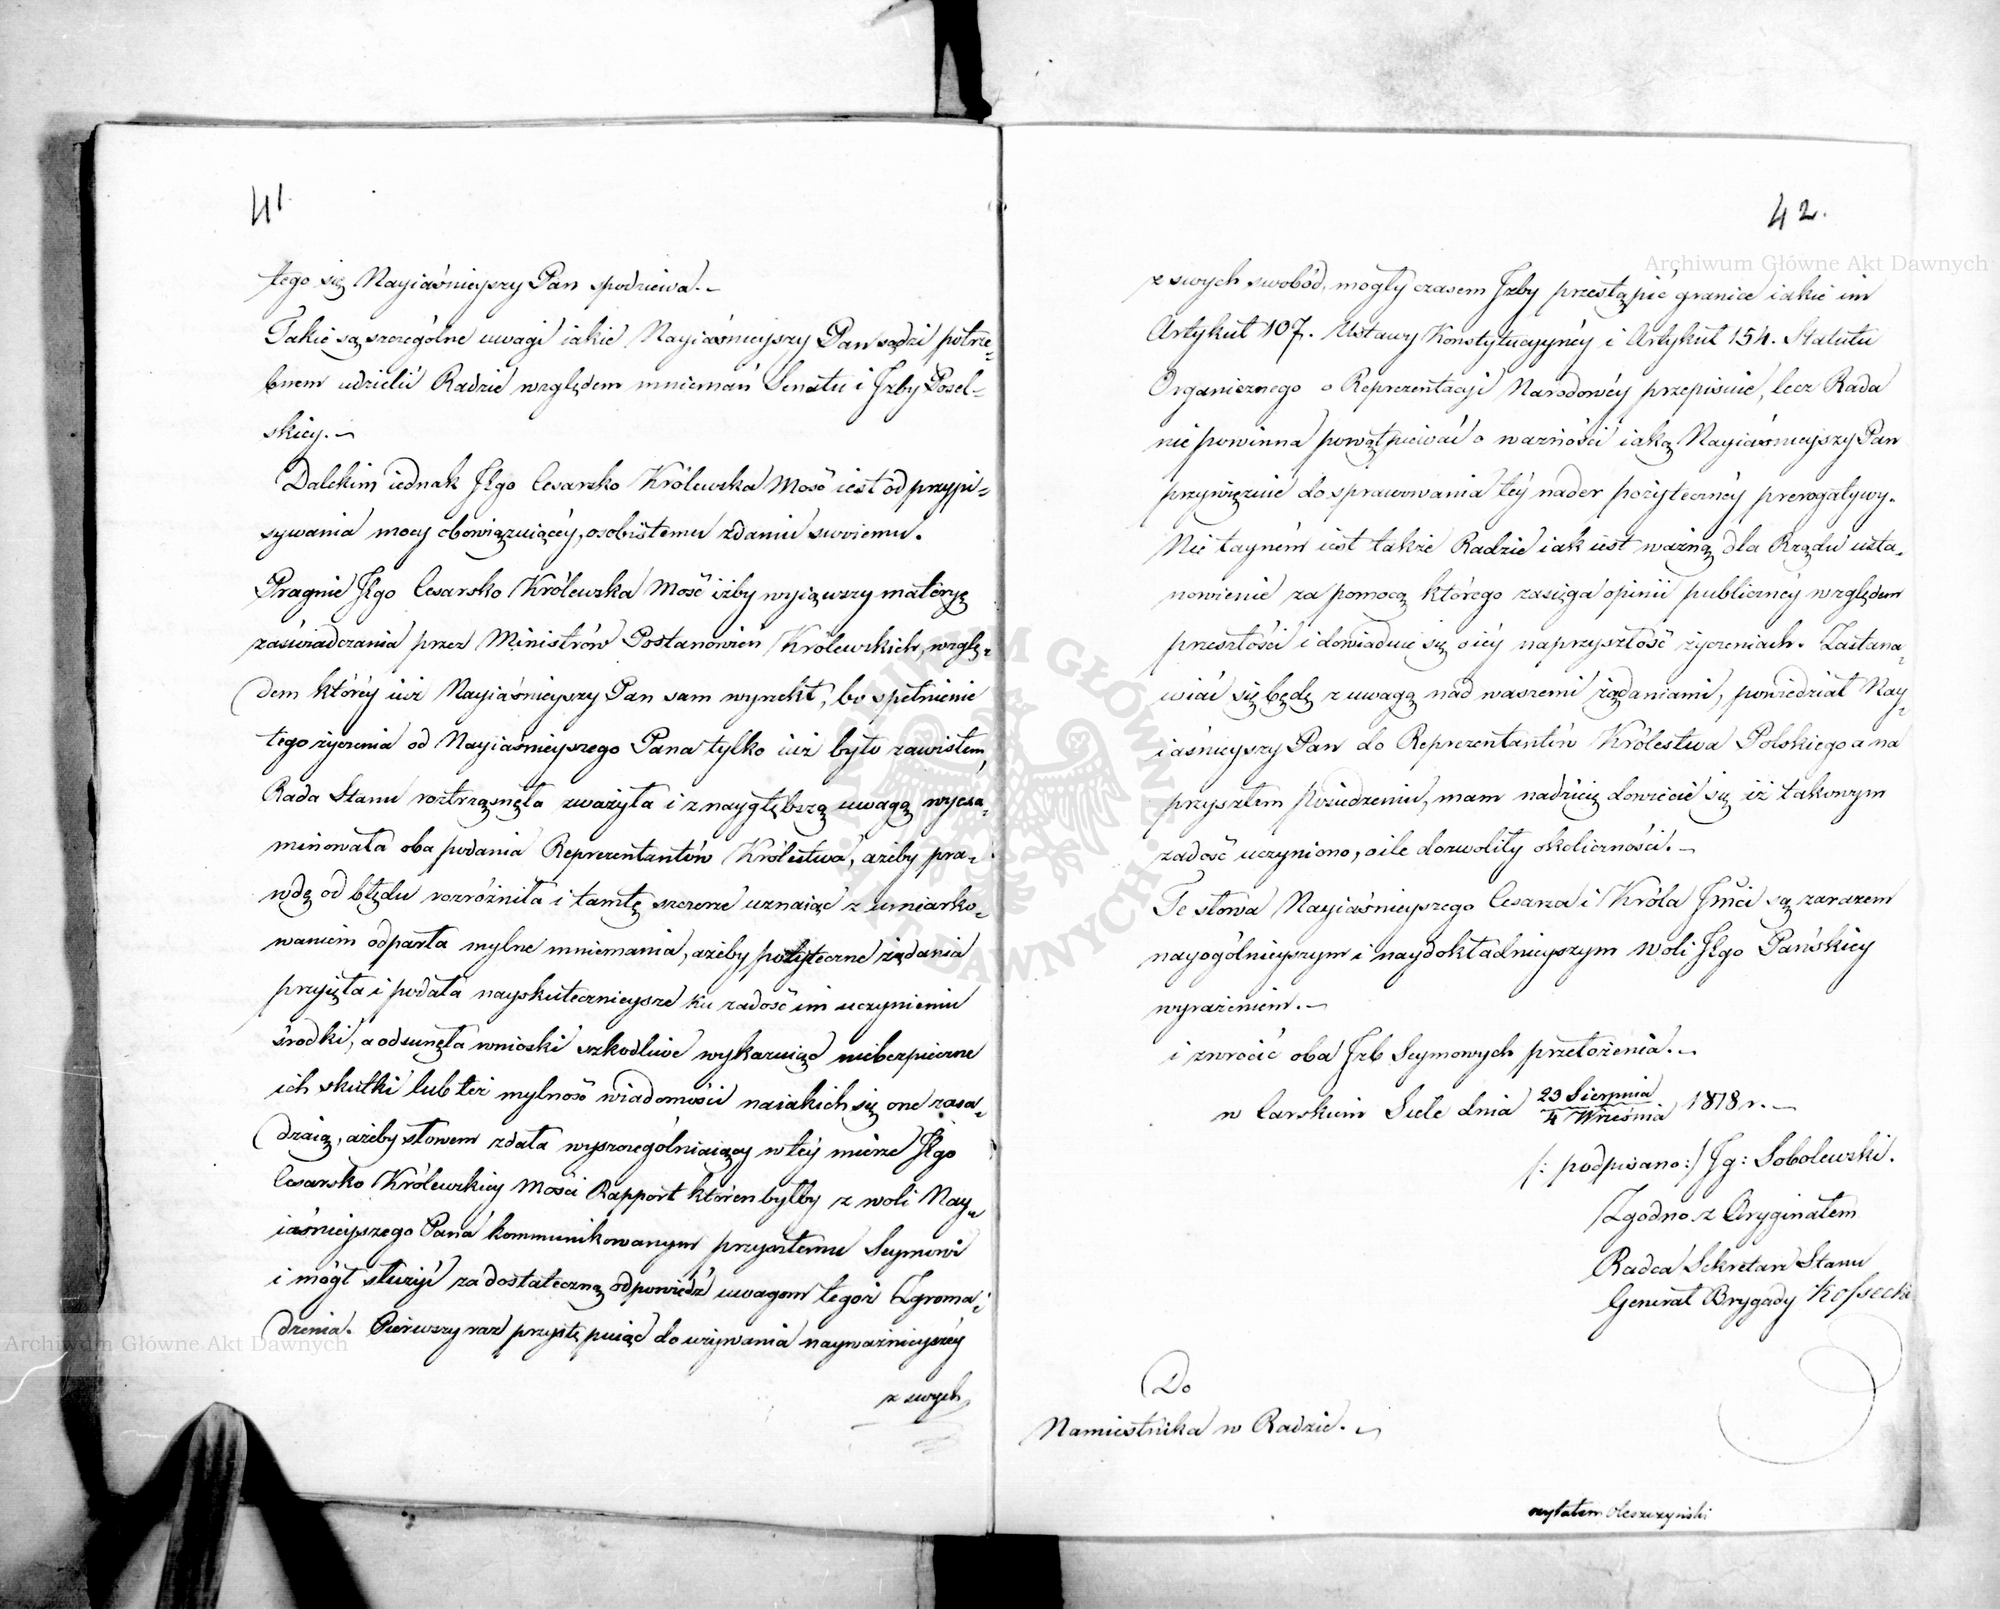 41
tego się Nayiaśnieyszy Pan spodziewa.-
Takie są szczególne uwagi iakie Nayiaśnieyszy Pan sądzi potrze=
bnem udzielić Radzie względem mniemań Senatu i Jzby Posel=
skiey.-
Dalekim iednak JEgo Cesarsko Królewska Mość iest od przypi=
sywania mocy obowiązuiącéy, osobistemu zdaniu swoiemu.
Pragnie JEgo Cesarsko Królewska Mość iżby wyiąwszy materyę
zaświadczania przez Ministrów Postanowień Królewskich, wzglę=
dem któréy iuż Nayiaśnieyszy Pan sam wyrzekł, bo spełnienie
tego życzenia od Nayiaśnieyszego Pana tylko iuż było zawisłem,
Rada Stanu roztrząsnęła zważyła i z naygłębszą uwagą wyexa=
minowała oba podania Reprezentantów Królestwa, ażeby pra=
wdę od błędu rozróżniła i tamtę szczerze uznaiąc z umiarko=
waniem odparła mylne mniemania, ażeby pożyteczne żądania
przyięła i podała nayskutecznieysze ku zadość im uczynieniu
środki, a odsunęła wnioski szkodliwe wykazuiąc niebezpieczne
ich skutki lub też mylność wiadomości na iakich się one zasa=
dzaią, ażeby słowem zdała wyszczególniaiący w téy mierze JEgo
Cesarsko Królewskiey Mości Rapport któren byłby z woli Nay=
iaśnieyszego Pana kommunikowanym przyszłemu Seymowi
i mógł służyć za dostateczną odpowiedź uwagom tegoż Zgroma=
dzenia. Pierwszy raz przystępuiąc do używania nayważnieyszéy
z swych
42.
z swych swobód, mogły czasem Jzby przestąpić granice iakie im
Artykuł 107. Ustawy Konstytucyynéy i Artykuł 154. Statutu
Organicznego o Reprezentacyi Narodowéy przepisuie, lecz Rada
nie powinna powątpiewać o ważności iaką Nayiaśnieyszy Pan
przywięzuie do sprawowania téy nader pożytecznéy prerogatywy.
Nie taynem iest także Radzie iak iest ważną dla Rządu usta=
nowienie za pomocą którego zasięga opinii publicznéy względem
przeszłości i dowiaduie się o iéy na przyszłość życzeniach. Zastana=
wiać się będę z uwagą nad waszemi żądaniami, powiedział Nay=
iaśnieyszy Pan do Reprezentantów Królestwa Polskiego a na
przyszłem Posiedzeniu, mam nadzieię dowiecie się iż takowym
zadość uczyniono, o ile dozwoliły okoliczności.-
Te słowa Nayiaśnieyszego Cesarza i Króla Jmci są zarazem
nayogólnieyszym i naydokładnieyszym woli JEgo Pańskiey
wyrażeniem.-
i zwrócić oba Jzb Seymowych przełożenia.-
w Carskiem Siele dnia 23 Sierpnia / 4 Września 1818 r.-
/: podpisano:/ Jg: Sobolewski.
Zgodno z Oryginałem
Radca Sekretarz Stanu
Generał Brygady Kossecki
Do
Namiestnika w Radzie.-
czytałem Oleszczyński
Archiwum Główne Akt Dawnych
Archiwum Główne Akt Dawnych
ARCHIWUM GŁÓWNE AKT DAWNYCH